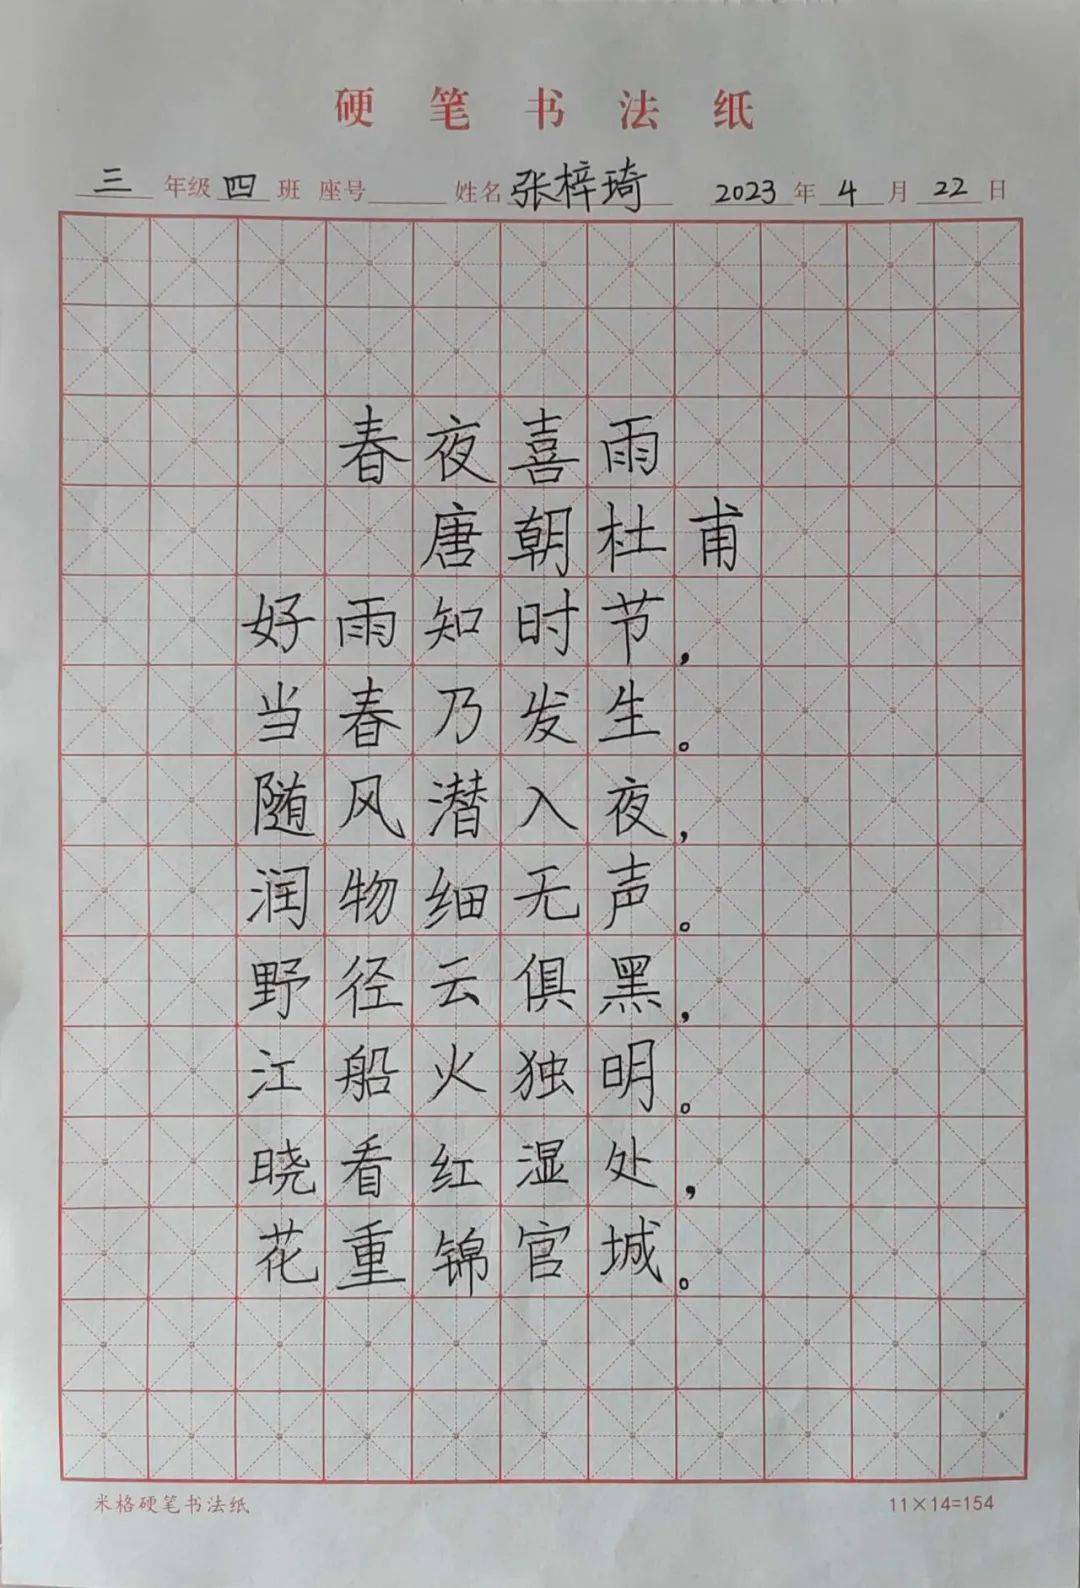 硬笔书法纸
三年级四班 座号 姓名张梓琦 2023年4月22日
春夜喜雨
唐朝杜甫
好雨知时节，
当春乃发生。
随风潜入夜，
润物细无声。
野径云俱黑，
江船火独明。
晓看红湿处，
花重锦官城。
米格硬笔书法纸 11×14=154